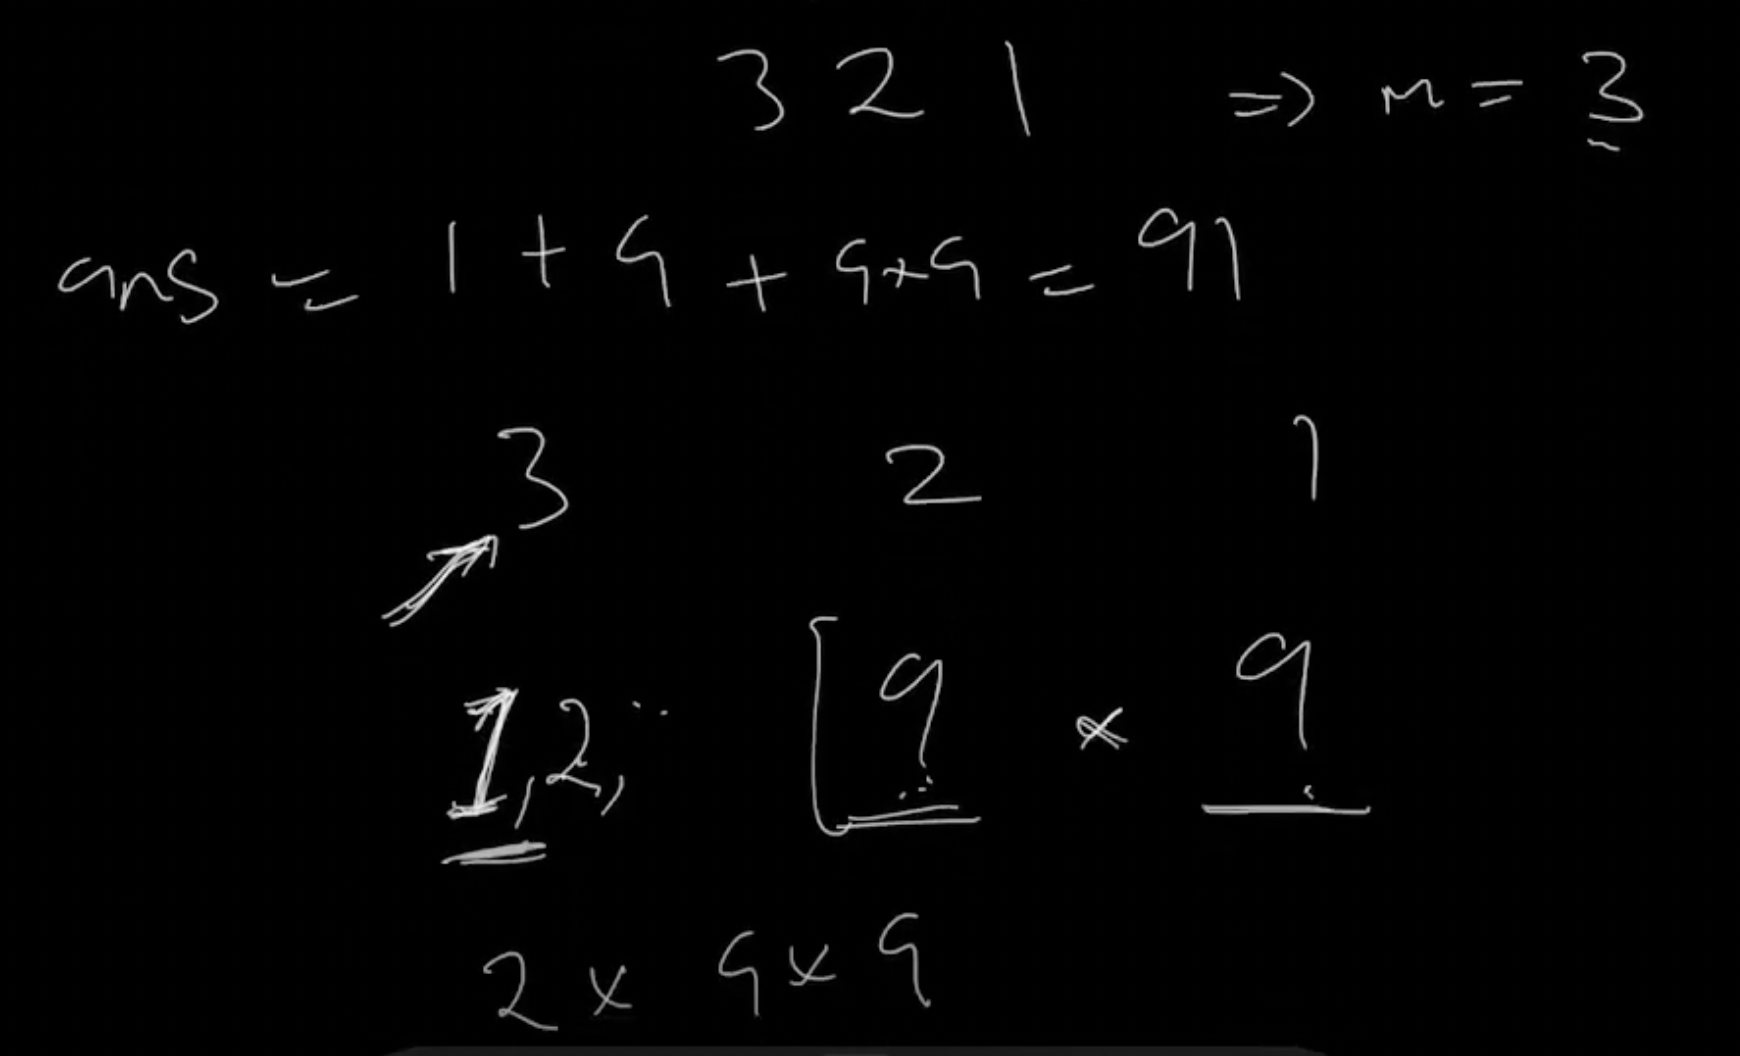 3 2 1 => n = 3
ans = 1 + 9 + 9x9 = 91
3 2 1
1, 2, .. [ 9 x 9
2 x 9 x 9